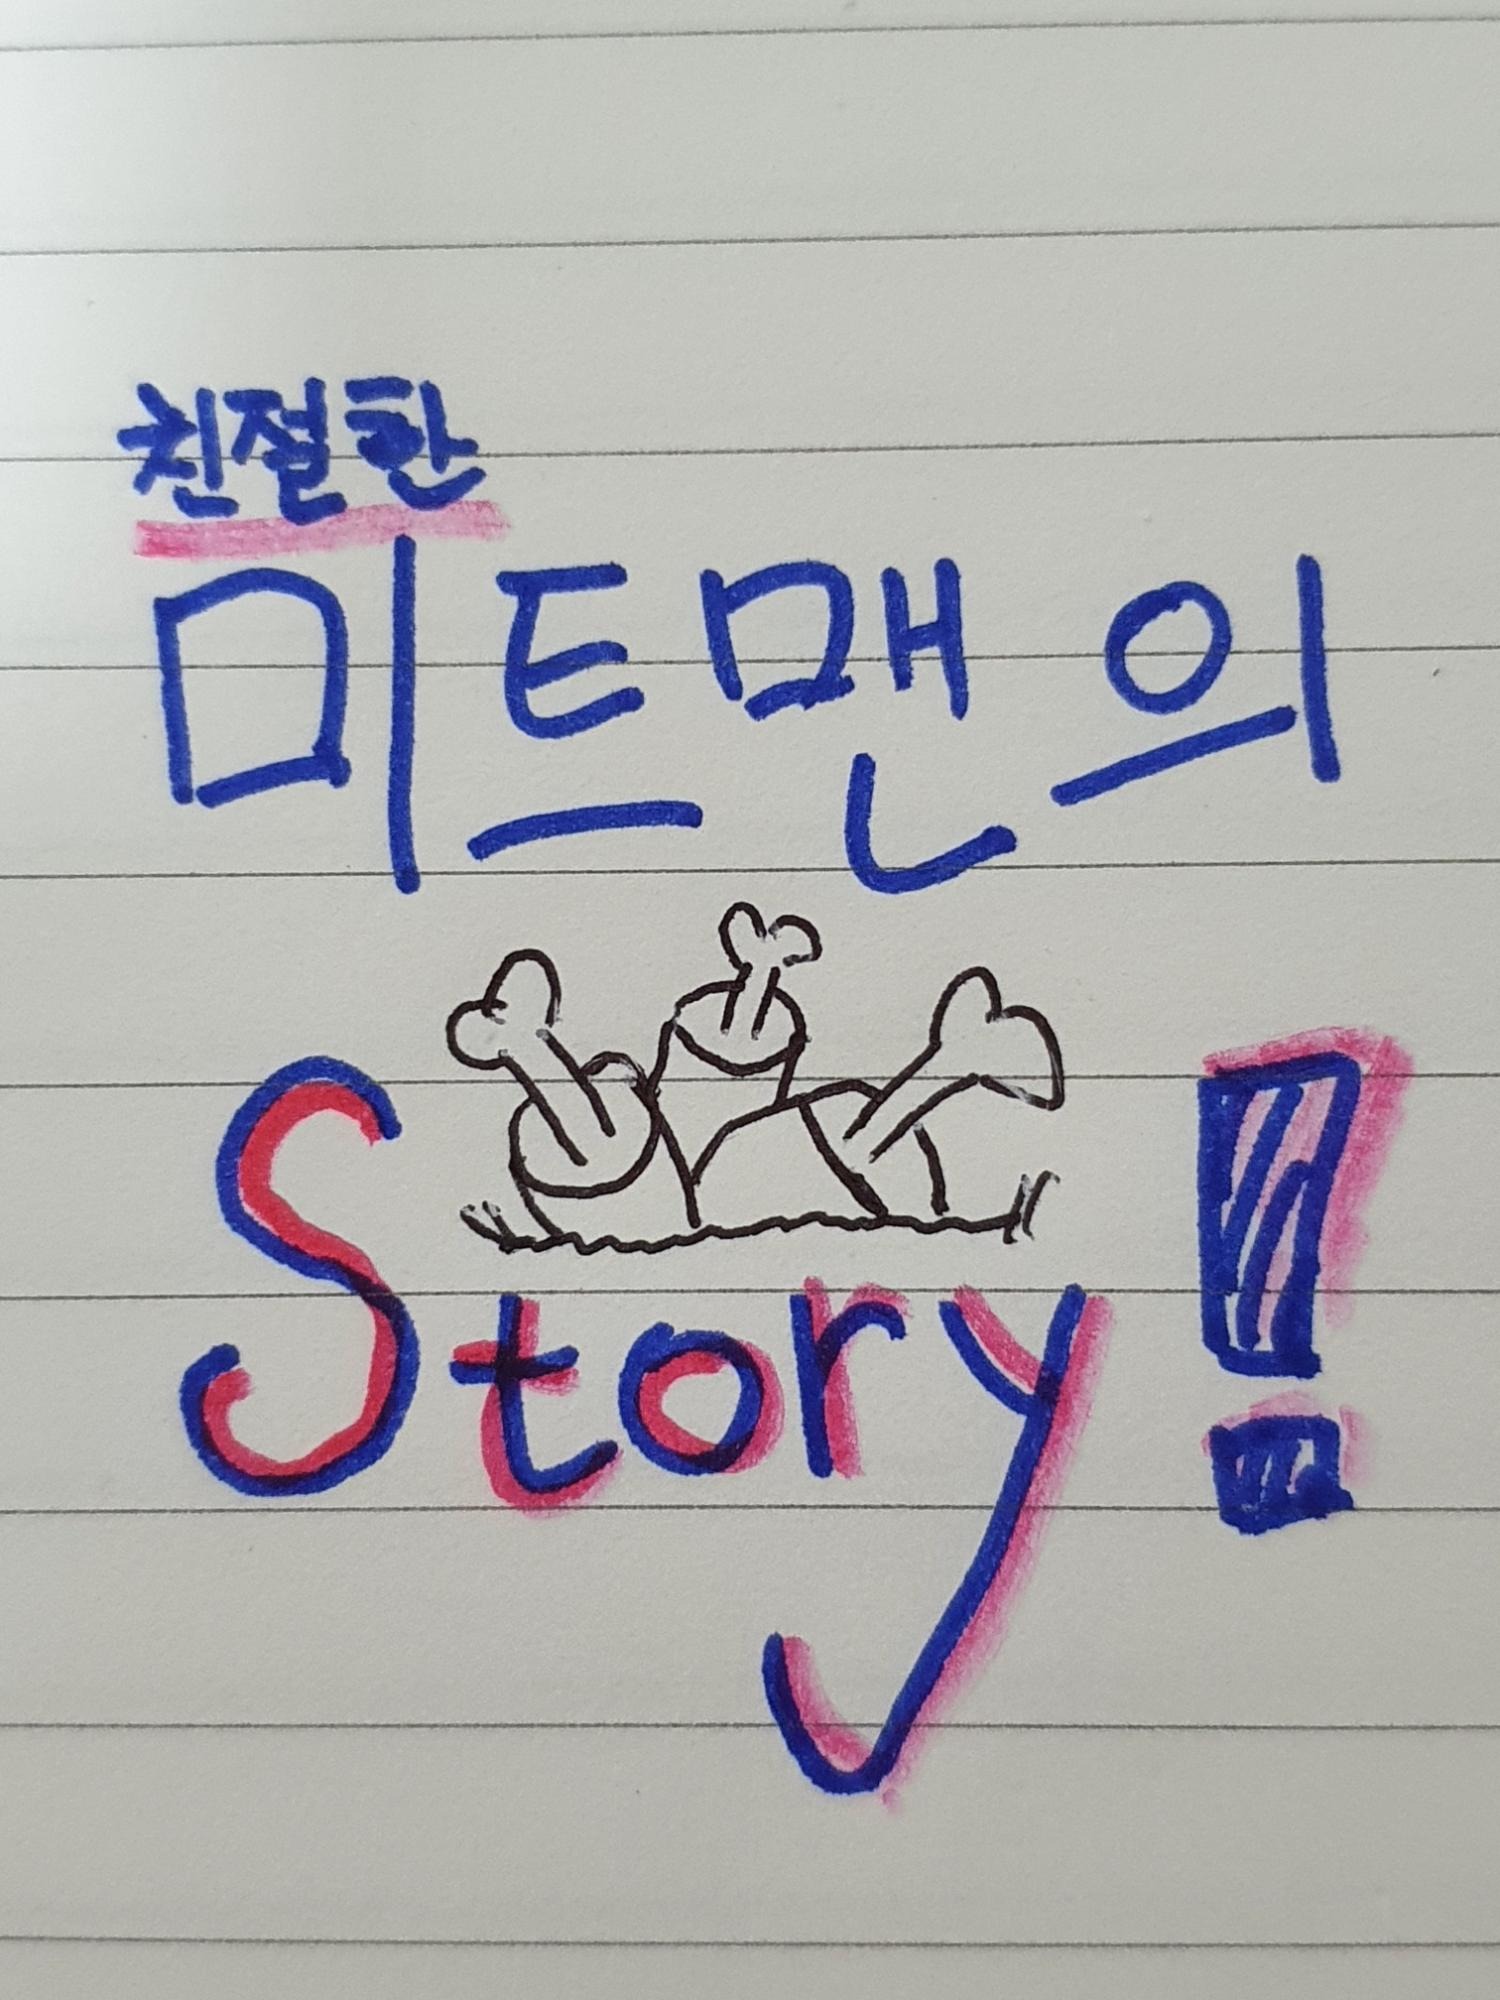 친절한
미트맨의
Story!